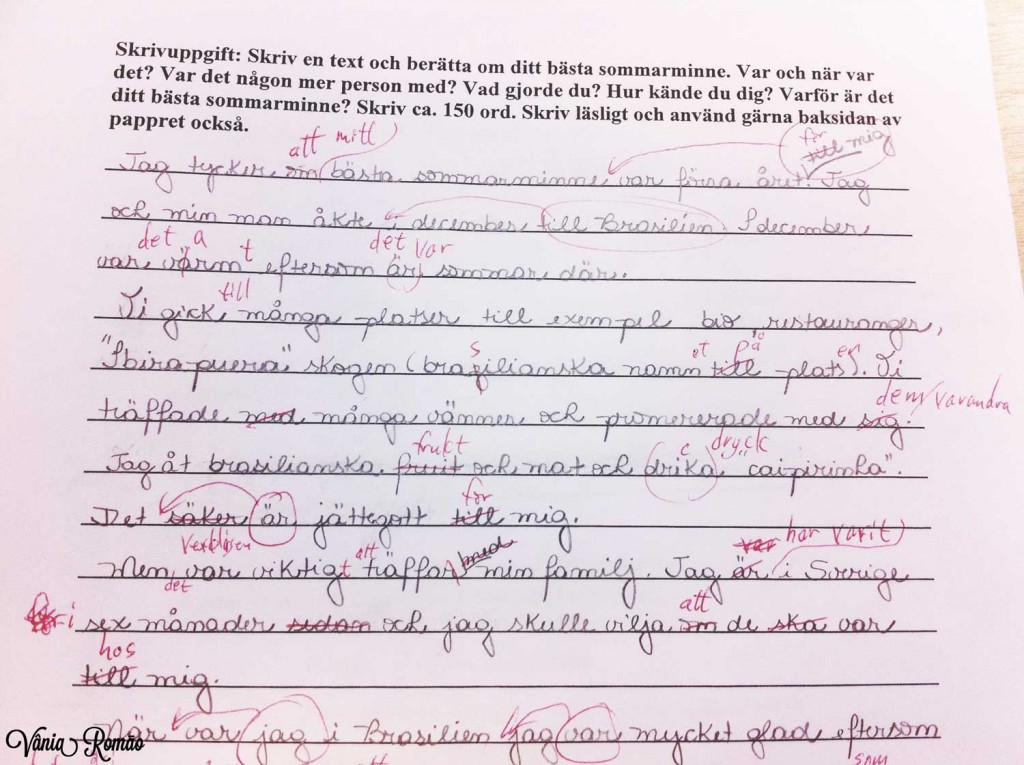 Skrivuppgift: Skriv en text och berätta om ditt bästa sommarminne. Var och när var
det? Var det någon mer person med? Vad gjorde du? Hur kände du dig? Varför är det
ditt bästa sommarminne? Skriv ca. 150 ord. Skriv läsligt och använd gärna baksidan av
pappret också.
att mitt för till mig
Jag tycker om bästa sommarminne var förra året. Jag
och min man åkte i december till Brasilien. I december
det a t det var
var värm eftersom är sommar där.
till
Vi gick många platser till exempel bio, restauranger,
s et på en
"Ibirapuera" skogen (brazilianska namn till plats). Vi
dem/varandra
träffade med många vänner och promererade med sig.
frukt c dryck
Jag åt brasilianska fruit och mat och drika "caipirinha".
för
Det säker är jättegott till mig.
Verkligen att med var har varit
Men var viktigt träffar min familj. Jag är i Sverige
det att
i sex månader sedan och jag skulle vilja om de ska var
hos
till mig.
När var jag i Brasilien jag var mycket glad eftersom
som
Vânia Romão